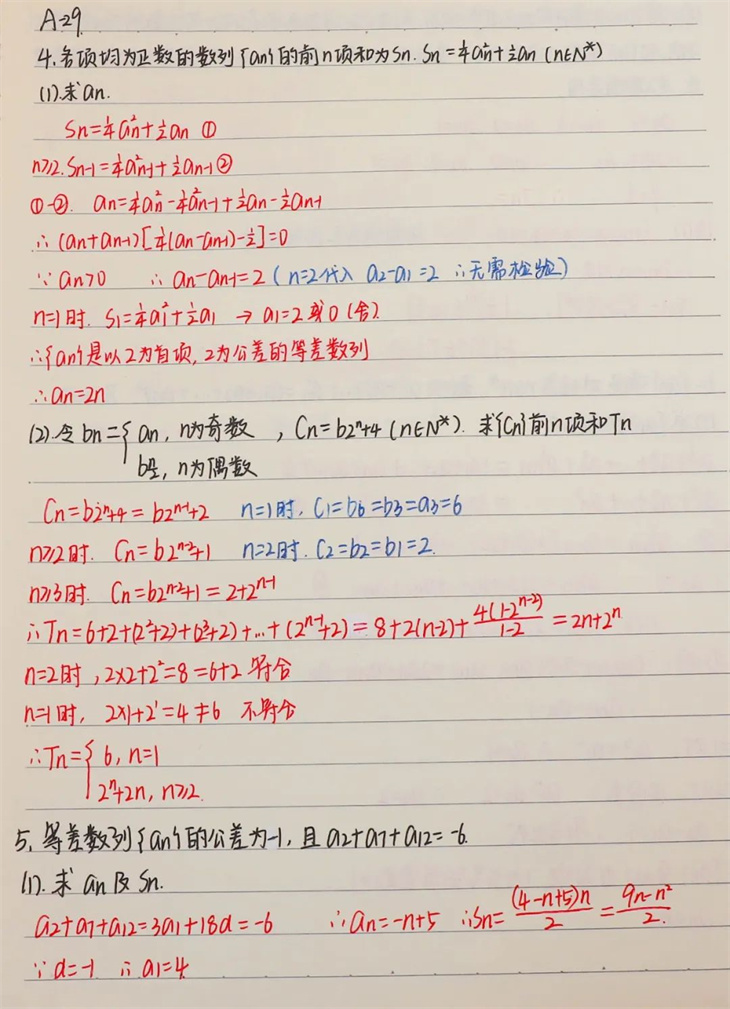 A-29
4.各项均为正数的数列{an}的前n项和为Sn. Sn=¼an²+½an (n∈N*)
(1)求an.
Sn=¼an²+½an ①
n≥2. Sn-1=¼a²n-1+½an-1 ②
①-②. an=¼an²-¼a²n-1+½an-½an-1
∴(an+an-1)[¼(an-an-1)-½]=0
∵an>0 ∴an-an-1=2 (n=2代入 a2-a1=2 ∴无需检验)
n=1时. S1=¼a1²+½a1 → a1=2或0(舍)
∴{an}是以2为首项,2为公差的等差数列
∴an=2n
(2).令bn={an, n为奇数 , Cn=b2ⁿ+4 (n∈N*). 求{Cn}前n项和Tn
bn/2, n为偶数
Cn=b2ⁿ+4=b2ⁿ⁻¹+2 n=1时, C1=b6=b3=a3=6
n≥2时. Cn=b2ⁿ⁻²+1 n=2时. C2=b2=b1=2.
n≥3时. Cn=b2ⁿ⁻²+1=2+2ⁿ⁻¹
∴Tn=6+2+(2²+2)+(2³+2)+...+(2ⁿ⁻¹+2)=8+2(n-2)+4(1-2ⁿ⁻²)/1-2=2n+2ⁿ
n=2时,2×2+2²=8=6+2 符合
n=1时, 2×1+2¹=4≠6 不符合
∴Tn={6, n=1
2ⁿ+2n, n≥2.
5,等差数列{an}的公差为-1,且a2+a7+a12=-6.
(1).求an及Sn.
a2+a7+a12=3a1+18d=-6 ∴an=-n+5 ∴Sn=(4-n+5)n/2=9n-n²/2.
∵d=-1 ∴a1=4.